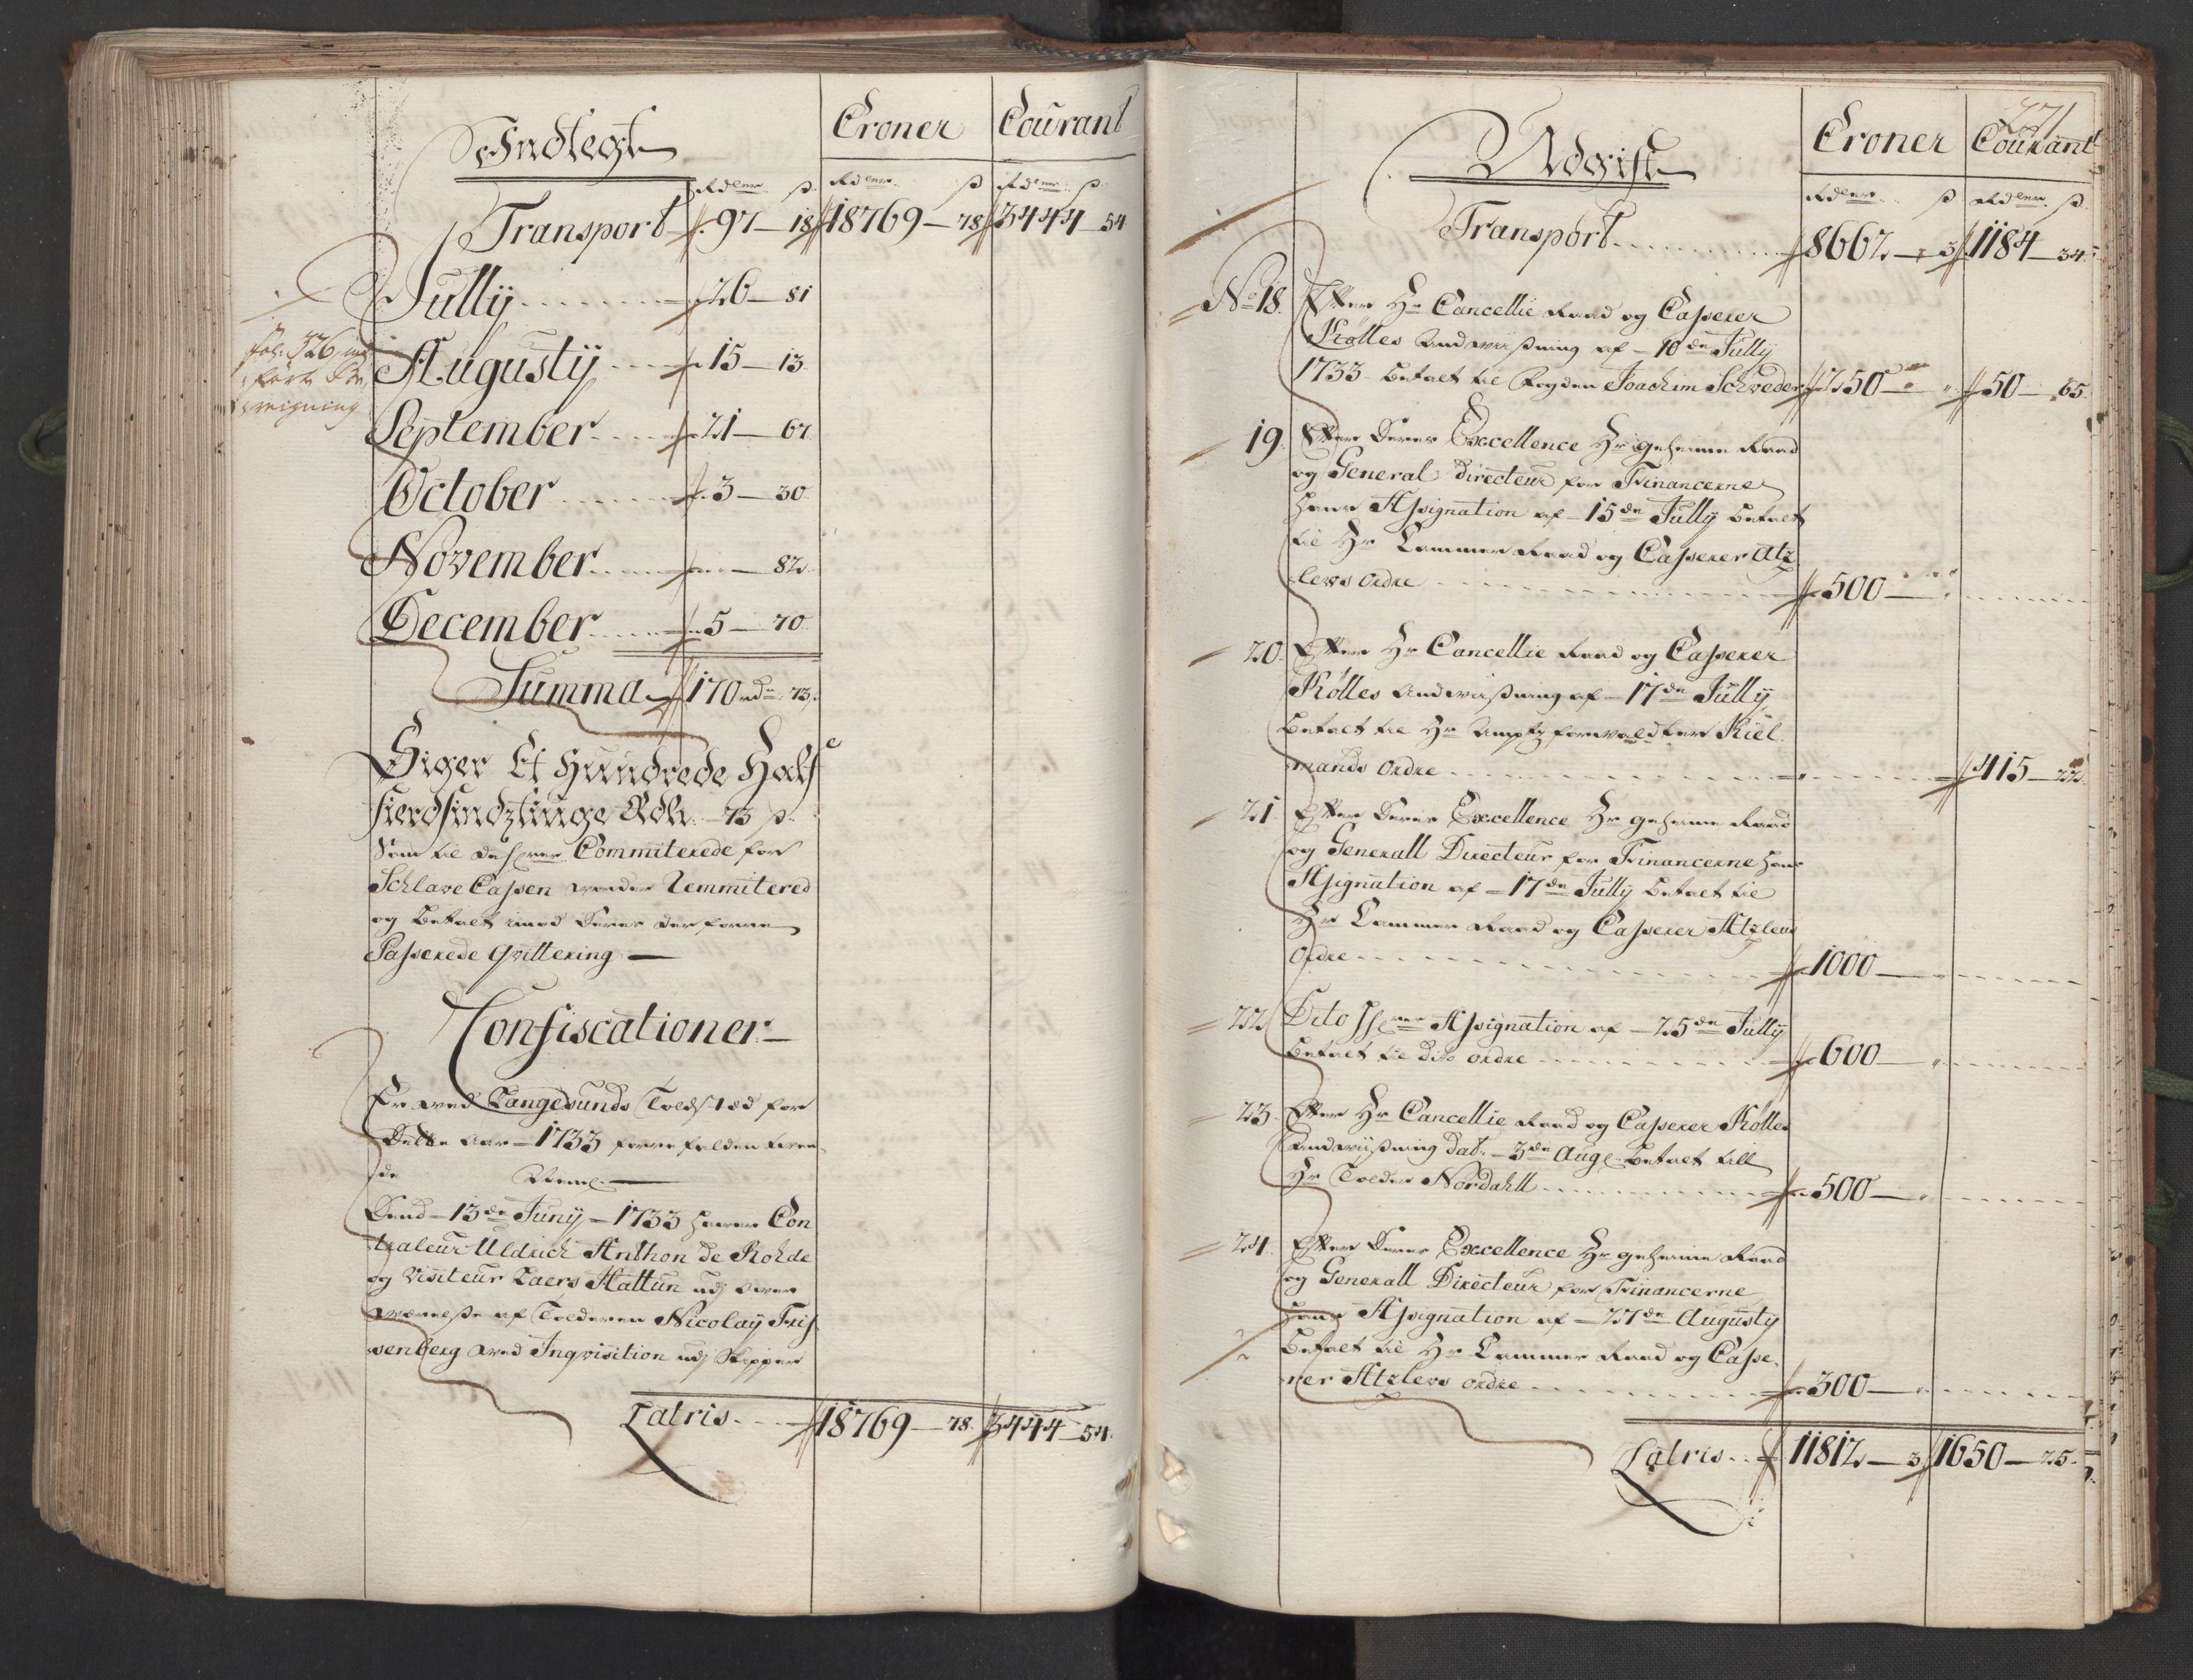 Indtegt
Croner Courant
Rdler ß Rdler ß Rdler ß
Transport 97 — 18 18769 — 78 3444 — 54
Jullÿ 26 — 81
fol: 326
Augustÿ 15 — 13
September 21 — 67
October 3 — 30
November „ — 82
December 5 — 70
Summa 170 rd 73
Siger Et Hundrede Half
fierdsindztiuge Rdlr 73 ß
Som til de Committerede for
Schlave Cassen worder remmitered
og betalt imod deres derforre
Passerede qvittering —
Confiscationer
Er wed Langesunds Toldsted for
dette aar 1733 forrefalden føren-
de Neml.
Dend 13de Junÿ 1733 hawer Con
traleur Uldrich Anthon de Rohde
og Visiteur Laers Hattun udj over
wærelse af Tolderen Nicolaÿ Friis
wenberg wed Inqvisition udj Skipper
Latris 18769 — 78 3444 — 54
271
Udgift
Croner Courant
Rdler ß Rdler ß
Transport 8662 — 3 1184 — 34
No 18. Efter Hr Cancellie Raad og Casserer
Kølles Andwiisning af 10de Jullÿ
1733 betalt til fogden Joachim Schweder 250 „ 50 — 65
19. Efter deres Excellence Hr geheime Raad
og General directeur for Financerne
hans Assignation af 15de Jullÿ betalt
til Hr Cammer Raad og Casserer Atz
lews ordre 500 —
20. Efter Hr Cancellie Raad og Casserer
Kølles Andwiisning af 17de Jullÿ
betalt til Hr Amptzforwaldter Kiel
mands ordre 415 — 22
21. Efter deres Excellence Hr geheime Raad
og Generall Directeur for Financerne hans
Assignation af 17de Jullÿ betalt til
Hr Cammer Raad og Casserer Atzlews
ordre 1000 —
22. Dito Assignation af 25de Jullÿ
betalt til dito ordre 600 —
23. Efter Hr Cancellie Raad og Casserer Kølles
Andwiisning dat. 3de Aug. betalt till
Hr Tolder Nordahll 500 —
24. Efter deres Excellence Hr geheime Raad
og Generall Directeur for Financerne
hans Assignation af 27de Augustÿ
betalt til Hr Cammer Raad og Casse-
rer Atzlews ordre 300 —
Latris 11812 — 3 1650 — 25